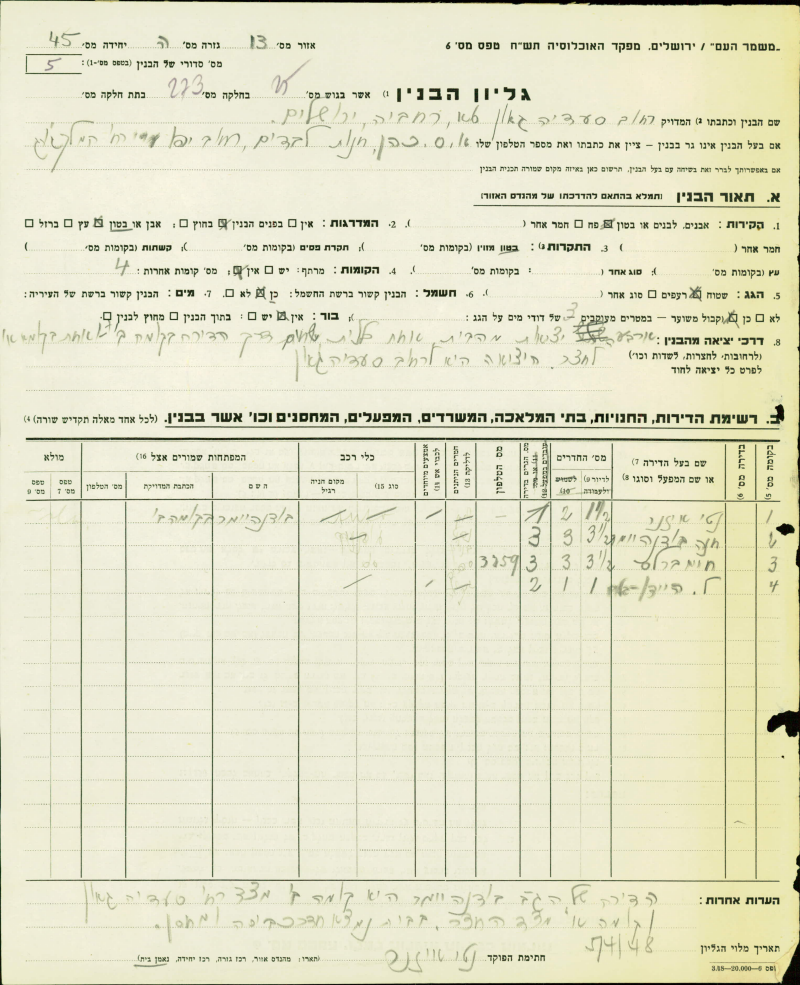 „משמר העם" / ירושלים. מפקד האוכלוסיה תש"ח טפס מס' 6
אזור מס' 13 גזרה מס' ה יחידה מס' 45
מס' סדורי של הבנין (בטפס מס'-1): 5
גליון הבנין (1 אשר בגוש מס' בחלקה מס' 273 בתת חלקה מס'
שם הבנין וכתבתו (2 המדויק רחוב סעדיה גאון 9א, רחביה, ירושלים.
אם בעל הבנין אינו גר בבנין – ציין את כתבתו ואת מספר הטלפון שלו א.ס. כהן, חנות לבדים, רחוב יפו
אם באפשרותך לברר זאת בשיחה עם בעל הבנין, תרשום כאן באיזה מקום שמורה תכנית הבנין
א. תאור הבנין (תמלא בהתאם להדרכת) של מהנדס האזור)
1. הקירות: אבנים, לבנים או בטון פח חמר אחר ( ). 2. המדרגות: אין בפנים הבנין בחוץ: אבן או בטון עץ ברזל
חמר אחר ( ) 3. התקרות (3: בטון מזוין (בקומות מס' ); תקרת פסים (בקומות מס' ); קשתות (בקומות מס' )
עץ (בקומות מס' ); סוג אחר ( : בקומות מס' ). 4. הקומות: מרתף: יש אין מס' קומות אחרות: 4
5. הגג: שטוח רעפים סוג אחר ( ). 6. חשמל: הבנין קשור ברשת החשמל: כן לא. 7. מים: הבנין קשור ברשת של העיריה:
לא כן קבול משוער – במטרים מעוקבים 3 של דודי מים על הגג: בור: אין יש: בתוך הבנין מחוץ לבנין
8. דרכי יציאה מהבנין: ארבע יציאות מהבית, אחת כללית דרך הדירה בקומה ב' אחת בקומה א'
(לרחובות, לחצרות, לשדות וכו') לחצר. היציאה היא לרחוב סעדיה גאון
לפרט כל יציאה לחוד
ב. רשימת הדירות, החנויות, בתי המלאכה, המשרדים, המפעלים, המחסנים וכו' אשר בבנין. (לכל אחד מאלה תקדיש שורה) (4
בקומה מס' (5 בדירה מס' (6 שם בעל הדירה (7 או שם המפעל וסוגו (8 מס' החדרים לדיור (9 מס' הטלפון כלי רכב סוג (15 מקום חניה רגיל המפתחות שמורים אצל (16 השם הכתבת המדויקת מס' הטלפון מולא טפס מס' 7 טפס מס' 9
1 נטי איזנר 1½ 2 1 — / / בודנהיימר בקומה ב'
2 חנה בודנהיימר 3½ 3 3 — /
3 חיים ברלס 3½ 3 3 3259
4 ל. 1 1 2 — / /
הערות אחרות: הדירה של הגב' בודנהיימר היא קומה ב' מצד רח' סעדיה גאון
וקומה א' מצד החצר. בבית נמצא חדר כביסה ומחסן.
תאריך מלוי הגליון 5/4/48 חתימת הפוקד נטי איזנר (תארו: מהנדס אזור, רכז גזרה, רכז יחידה, נאמן בית)
טפס 6—20.000—3.48